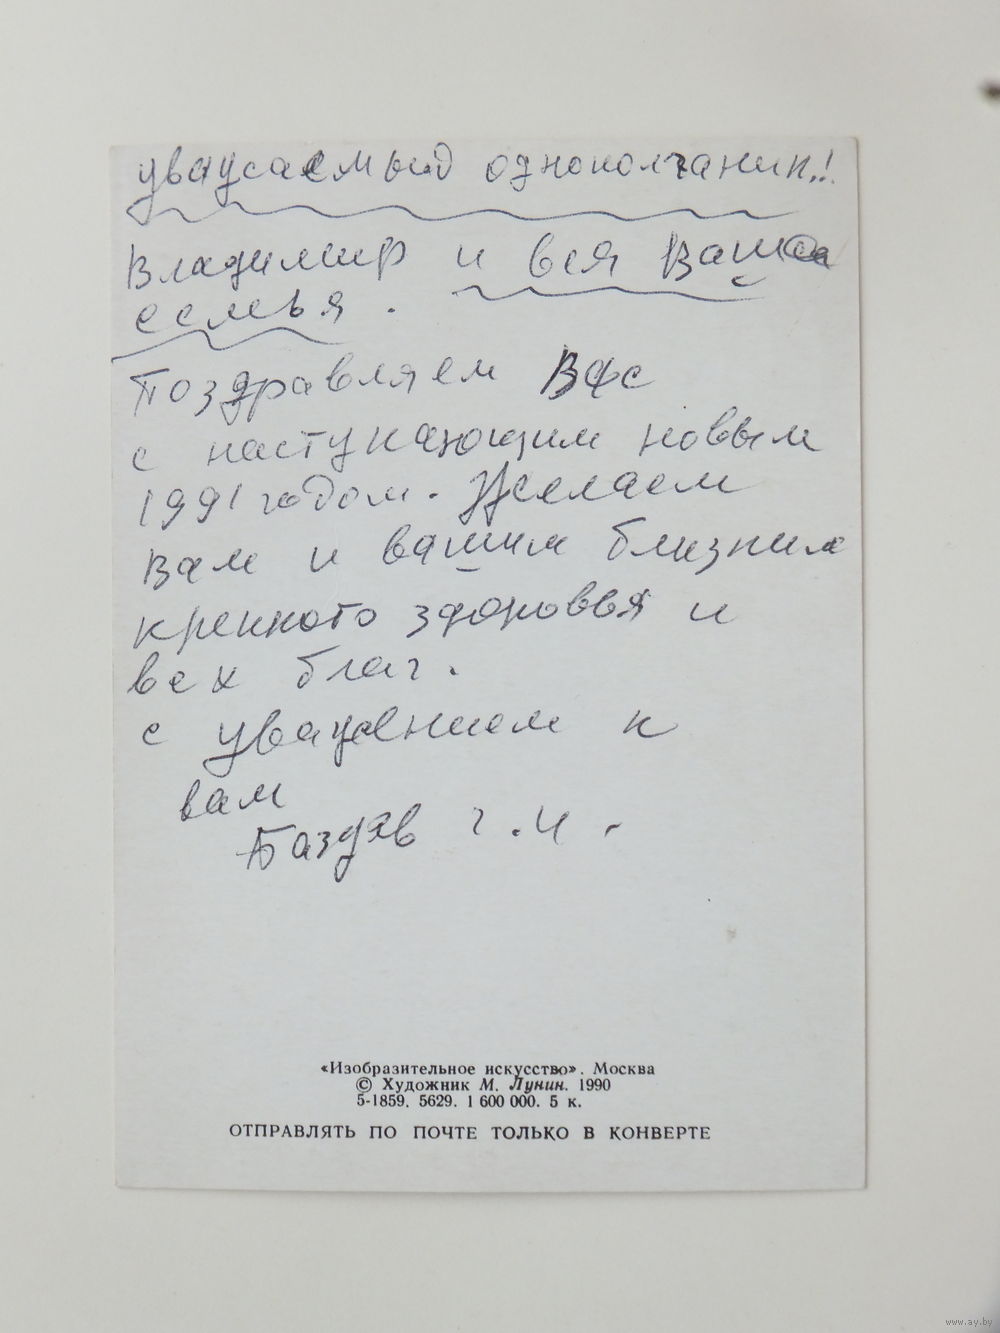 уважаемый однополчанин!
Владимир и вся Ваша
семья.
Поздравляем Вас
с наступающим новым
1991 годом. Желаем
Вам и вашим близким
крепкого здоровья и
всех благ.
с уважением к
вам
г.и.
«Изобразительное искусство». Москва
© Художник М. Лунин. 1990
5-1859. 5629. 1 600 000. 5 к.
ОТПРАВЛЯТЬ ПО ПОЧТЕ ТОЛЬКО В КОНВЕРТЕ
www.ay.by